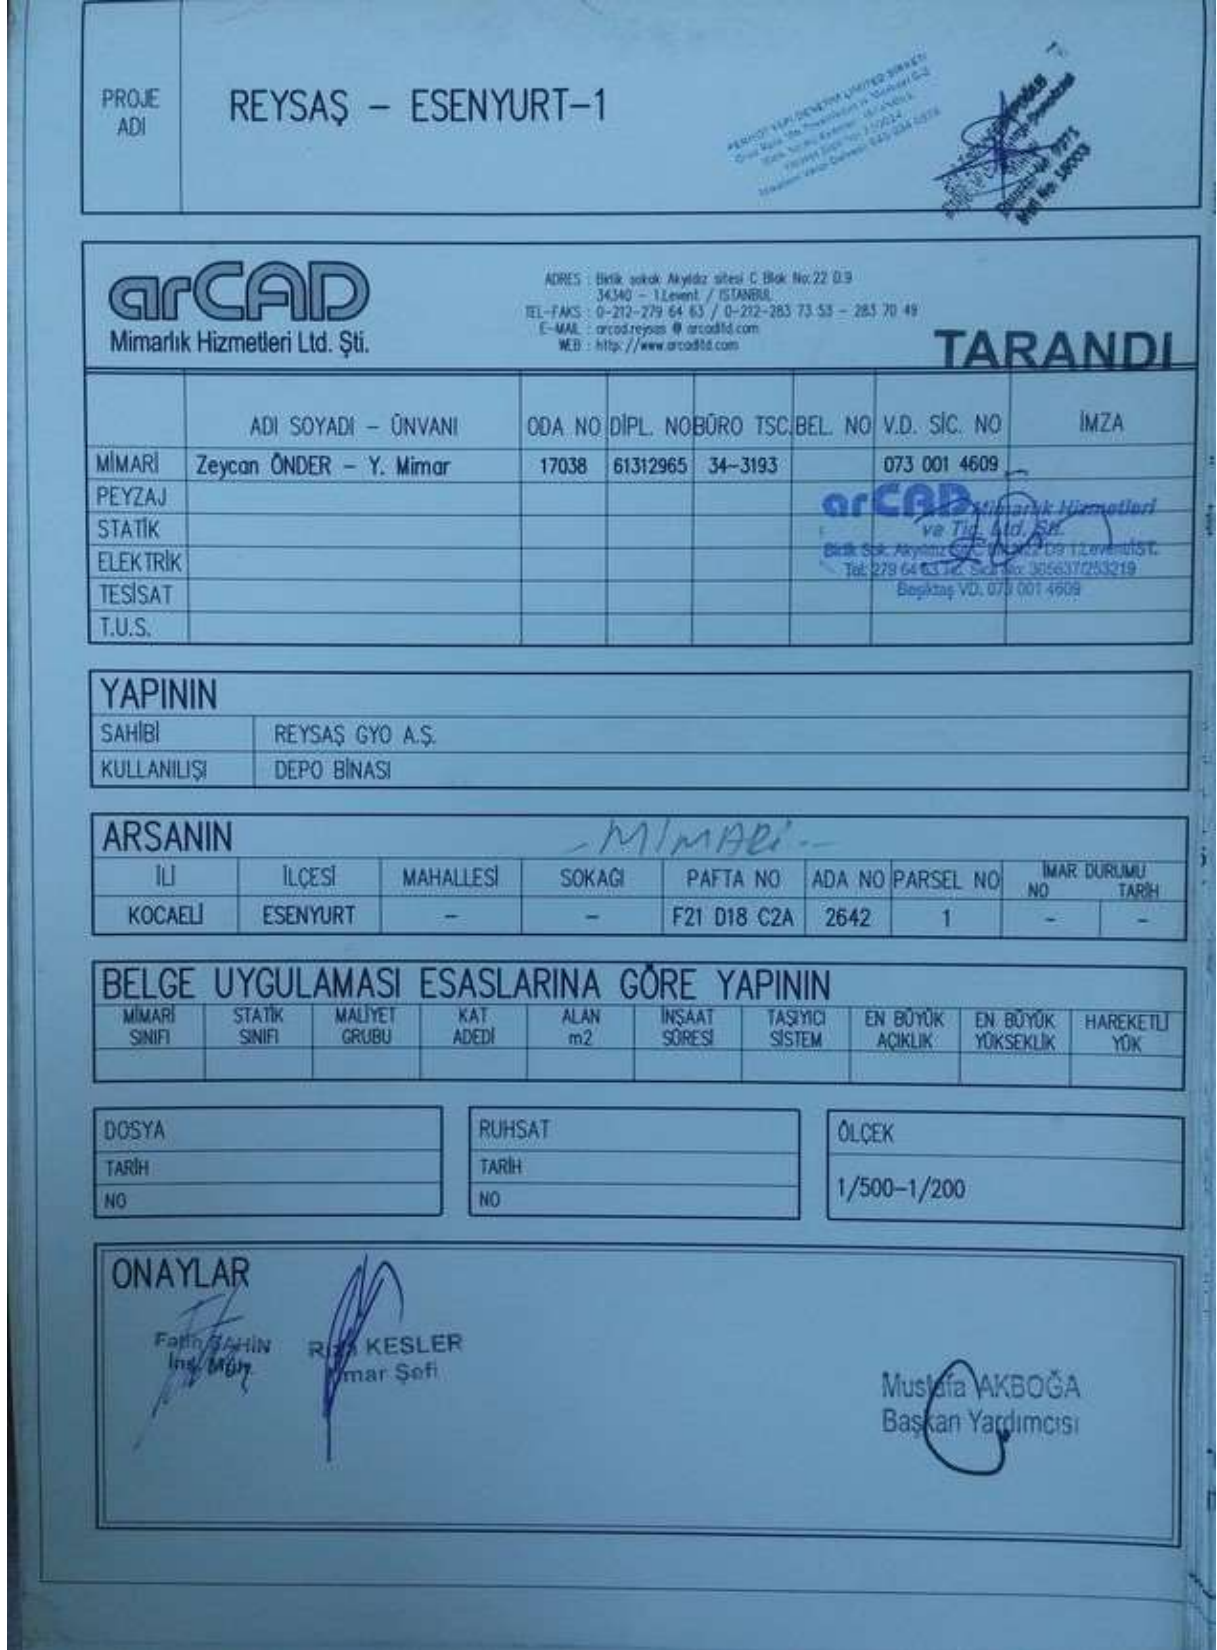 PROJE
ADI
REYSAŞ – ESENYURT–1
arCAD
Mimarlık Hizmetleri Ltd. Şti.
ADRES : Birlik sokak Akyıldız sitesi C Blok No:22 D.9
34340 – 1.Levent / ISTANBUL
TEL–FAKS : 0–212–279 64 63 / 0–212–283 73 53 – 283 70 49
E–MAIL : arcad.reysas @ arcadltd.com
WEB : http://www.arcadltd.com
TARANDI
ADI SOYADI – ÜNVANI ODA NO DİPL. NO BÜRO TSC. BEL. NO V.D. SİC. NO İMZA
MİMARİ Zeycan ÖNDER – Y. Mimar 17038 61312965 34–3193 073 001 4609
PEYZAJ
STATİK
ELEKTRİK
TESİSAT
T.U.S.
arCAD Mimarlık Hizmetleri
ve Tic. Ltd. Şti.
Tel: 279 64 63 Tic. Sicil No: 305637/253219
Beşiktaş VD. 073 001 4609
YAPININ
SAHİBİ REYSAŞ GYO A.Ş.
KULLANILIŞI DEPO BİNASI
ARSANIN
- MİMARİ -
İLİ İLÇESİ MAHALLESİ SOKAĞI PAFTA NO ADA NO PARSEL NO İMAR DURUMU
NO TARİH
KOCAELİ ESENYURT – – F21 D18 C2A 2642 1 – –
BELGE UYGULAMASI ESASLARINA GÖRE YAPININ
MİMARİ SINIFI STATİK SINIFI MALİYET GRUBU KAT ADEDİ ALAN m2 İNŞAAT SÜRESİ TAŞIYICI SİSTEM EN BÜYÜK AÇIKLIK EN BÜYÜK YÜKSEKLİK HAREKETLİ YÜK
DOSYA
TARİH
NO
RUHSAT
TARİH
NO
ÖLÇEK
1/500–1/200
ONAYLAR
Fatih ŞAHİN
İnş. Müh.
KESLER
İmar Şefi
Mustafa AKBOĞA
Başkan Yardımcısı